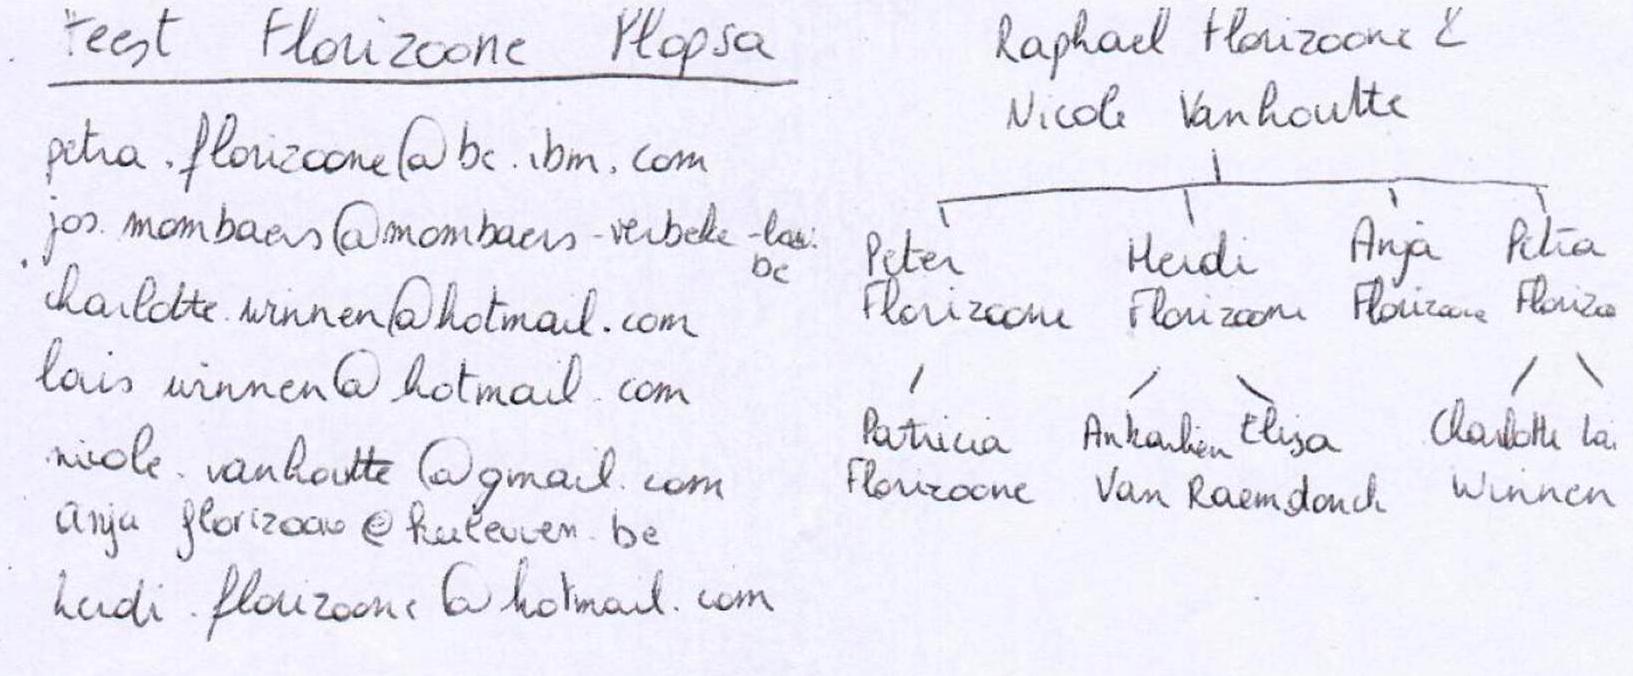 Feest Florizoone Plopsa
petra.florizoone@be.ibm.com
jos.mombaers@mombaers-verbeke-law.
be
charlotte.winnen@hotmail.com
lois winnen@hotmail.com
nicole.vanhoutte@gmail.com
anja florizoone@kuleuven.be
heidi.florizoone@hotmail.com
Raphael Florizoone &
Nicole Vanhoutte
Peter Heidi Anja Petra
Florizoone Florizoone Florizoone Florizoo
Patricia Elisa Charlotte Lo
Florizoone Van Raemdonck Winnen